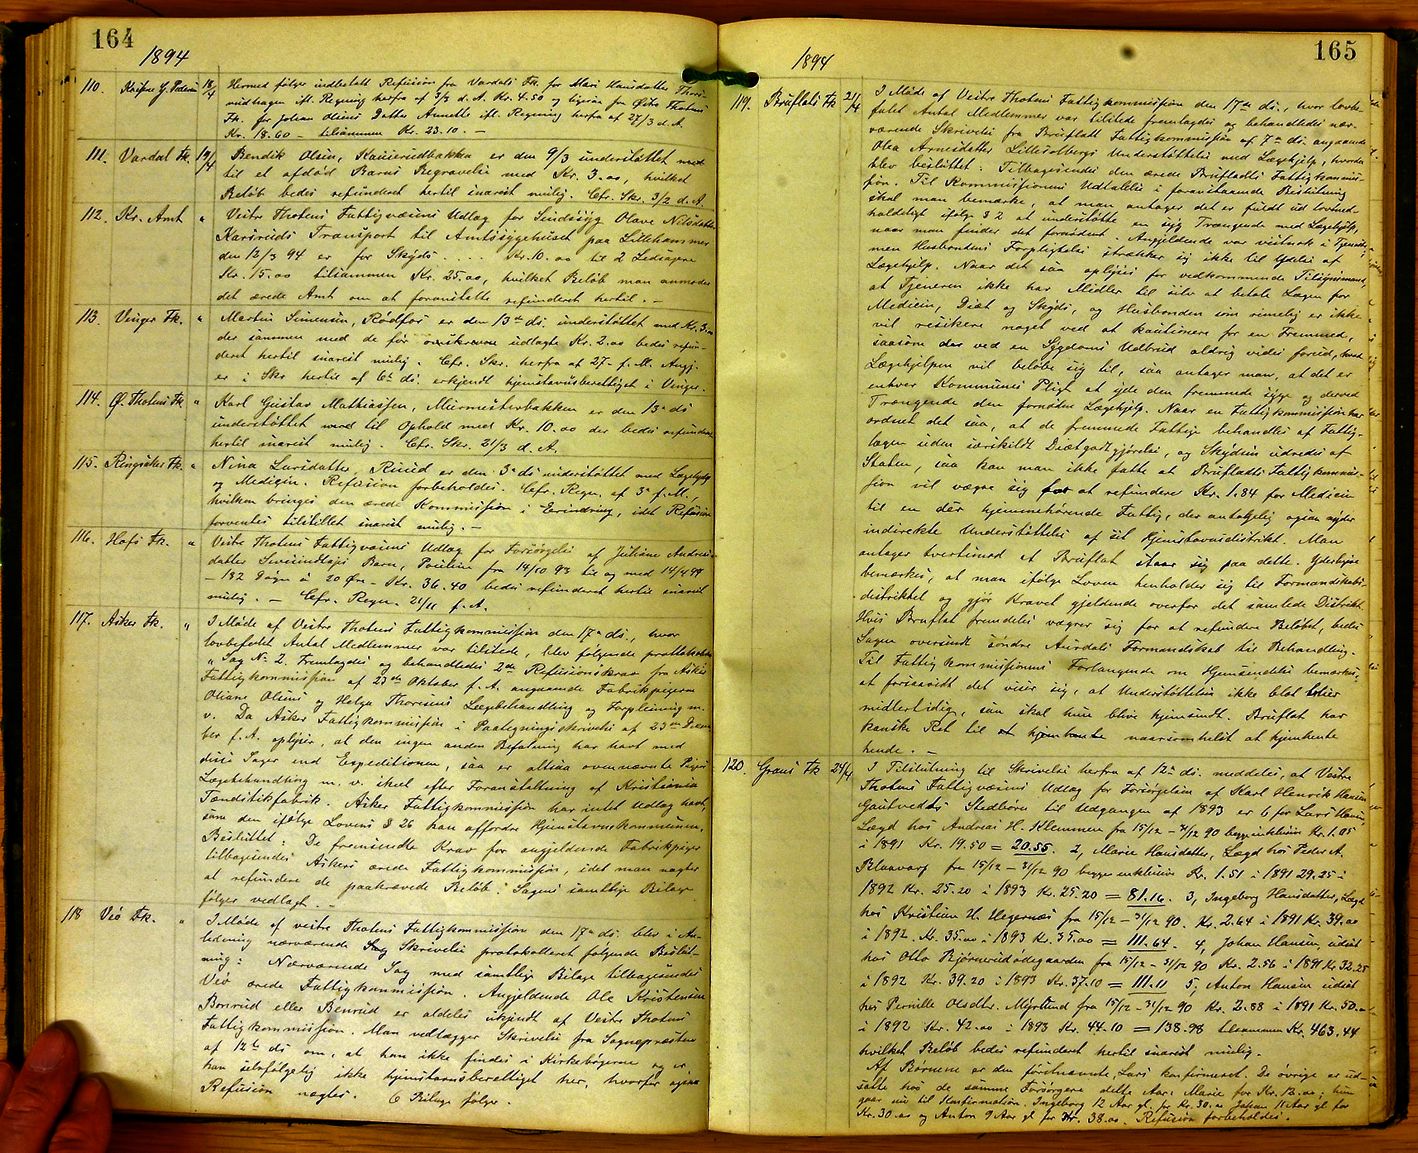 164
1894
110. Kasserer J. Pedersen 18/4 Hermed følger indbetalt Refusion fra Vardals Fk. for Mari Hansdatter Thors-
rudhagen ifl. Regning herfra af 3/3 d. A. Kr. 4.50 og ligesaa fra Østre Thotens
Fk. for Johan Olsens Datter Annette ifl. Regning herfra af 27/3 d. A.
Kr. 18.60 — tilsammen Kr. 23.10. —
111. Vardal Fk. 19/4 Bendik Olsen, er den 9/3 understøttet med
til et afdød Barns Begravelse med Kr. 3.00, hvilket
Beløb bedes refunderet hertil snarest mulig. Cfr. Skr. 3/2 d. A.
112. Kr. Amt " Vestre Thotens Fattigvæsens Udlag for Sindssyg Olave Nilsdatter
Karsruds Transport til Amtssygehuset paa Lillehammer
den 12/3 94 er for Skyds . . . . Kr. 10.00 til 2 Ledsagere
Kr. 15.00 tilsammen Kr. 25.00, hvilket Beløb man anmoder
det ærede Amt om at foranstalte refunderet hertil. —
113. Vinger Fk. " Martin Simensen, Rødfos er den 13de ds. understøttet med Kr. 3.00
der sammen med de før udlagte Kr. 2.00 bedes refun-
deret hertil snarest mulig. Cfr. Skr. herfra af 27. f. M. Angj.
er i Skr. hertil af 6te ds. erkjendt hjemstavnsberettiget i Vinger.
114. Ø. Thotens Fk. " Karl Gustav Mathiassen, Murmesterbakken er den 13de ds
understøttet med til Ophold med Kr. 10.00 der bedes refunderet
hertil snarest mulig. Cfr. Skr. 21/3 d. A.
115. Ringsaker Fk. " Nina Larsdatter, er den 3de ds understøttet med Lægehjælp
og Medizin. Refusion forbeholdes. Cfr. Regn. af 3de f. M.,
hvilken bringes den ærede Kommission i Erindring, idet Refusion
forventes tilstillet snarest mulig. —
116. Hofs Fk. " Vestre Thotens Fattigvæsens Udlag for Forsørgelse af Juliane Andreas-
datter Barn, fra 14/10 93 til og med 14/4 94
— 182 Døgn à 20 Øre — Kr. 36.40 bedes refunderet hertil snarest
mulig. — Cfr. Regn. 21/11 f. A.
117. Asker Fk. " I Møde af Vestre Thotens Fattigkommission den 17de ds., hvor
lovbefalet Antal Medlemmer var tilstede, blev følgende protokolleret
"Sag No 2. Fremlagdes og behandledes 2de Refusionskrav fra Asker
Fattigkommission af 23de Oktober f. A. angaaende Fabrikpigerne
Oliane Olsens og Helga Thoresens Lægebehandling og Forpleining m.
v. Da Asker Fattigkommission i Paategningsskrivelse af 23de Decem-
ber f. A. oplyser, at den ingen anden Befatning har havt med
disse Sager end Expeditionen, saa er altsaa ovennævnte Pigers
Lægebehandling m. v. skeet efter Foranstaltning af Kristiania
Tændstikfabrik. Asker Fattigkommission har intet Udlag havt,
som den ifølge Lovens § 26 kan affordre Hjemstavnskommunen.
Besluttet: De fremsendte Krav for angjeldende Fabrikpiger
tilbagesendes Askers ærede Fattigkommission, idet man nægter
at refundere de paakrævede Beløb." Sagens samtlige Bilage
følger vedlagt. —
118 Vaa Fk. " I Møde af vestre Thotens Fattigkommission den 17de ds. blev i An-
ledning nærværende Skrivelse protokolleret følgende Beslut-
ning: Nærværende Sag med samtlige Bilage tilbagesendes
ærede Fattigkommission. Angjeldende Ole Kristensen
Bonrud eller Benrud er aldeles ukjendt af Vestre Thotens
Fattigkommission. Man vedlægger Skrivelse fra Sognepræsten
af 12te ds om, at han ikke findes i Kirkebøgerne og er
han selvfølgelig ikke hjemstavnsberettiget her, hvorfor ogsaa
Refusion nægtes. 6 Bilage følger.
165
1894
119. Bruflats Fk 21/4 I Møde af Vestre Thotens Fattigkommission den 17de ds., hvor lovbe-
falet Antal Medlemmer var tilstede fremlagdes og behandledes nær-
værende Skrivelse fra Bruflats Fattigkommission af 7de ds. angaaende
Olea Arnesdatter Lillesolbergs Understøttelse med Lægehjelp, hvorda
blev besluttet: Tilbagesendes den ærede Bruflats Fattigkommis-
sion. Til Kommissionens Udtalelse i foranstaaende Beslutning
skal man bemærke, at man antager det er fuldt ud lovmed-
holdeligt ifølge § 2 at understøtte en syg Trængende med Lægehjelp,
naar man finder det fornødent. Angjeldende var vistnok i Tjeneste,
men Husbondens Forpligtelse strækker sig ikke til Ydelse af
Lægehjelp. Naar det saa oplyses for vedkommende Tilsynsmand,
at Tjeneren ikke har Midler til selv at betale Lægen for
Medicin, Diæt og Skyds, og Husbonden som rimelig er ikke
vil resikere noget ved at kautionere for en Fremmed,
saasom der ved en Sygdoms Udbrud aldrig vides forud, hvad
Lægehjelpen vil beløbe sig til, saa antager man, at det er
enhver Kommunes Pligt at yde den fremmede syge og derved
Trængende den fornødne Lægehjelp. Naar en Fattigkommission har
ordnet det saa, at de fremmede Fattige behandles af Fattig-
lægen uden særskildt Diætgodtgjørelse, og Skydsen udredes af
Staten, saa kan man ikke fatte at Bruflats Fattigkommis-
sion vil vægre sig for at refundere Kr. 1.84 for Medicin
til en dér hjemmehørende Fattig, der antagelig ogsaa nyder
indirekte Understøttelse af sit Hjemstavnsdistrikt. Man
antager tvertimod at Bruflat staar sig paa dette. Yderligere
bemærkes, at man ifølge Loven henholder sig til Formandskabs-
distriktet og gjør Kravet gjeldende overfor det samlede Distrikt.
Hvis Bruflat fremdeles vægrer sig for at refundere Beløbet, bedes
Sagen oversendt søndre Aurdals Formandskab til Behandling.
Til Fattigkommissionens Forlangende om Hjemsendelse bemærkes,
at forsaavidt det viser sig, at Understøttelsen ikke blot bliver
midlertidig, saa skal hun blive hjemsendt. Bruflat har
kanske Ret til at hjembente naarsomhelst at hjemhente
hende. —
120. Grans Fk 24/4 I Tilslutning til Skrivelse herfra af 12te ds. meddeles, at Vestre
Thotens Fattigvæsens Udlag for Forsørgelsen af Karl Henrik Hansen
Gaukveds Stedbørn til Udgangen af 1893 er 6 for Lars Hansen,
Lægd hos Andreas H. Klemmen fra 15/12 – 31/12 90 begge inklusive Kr. 1.05
i 1891 Kr. 19.50 = 20.55. 2, Marie Hansdatter, Lægd hos Peder A.
Blaavarp fra 15/12 – 31/12 90 begge inklusive Kr. 1.51 i 1891 29.25 i
1892 Kr. 25.20 i 1893 Kr. 25.20 = 81.16. 3, Ingeborg Hansdatter, Lægd
hos Kristian H. Hegernæs fra 15/12 – 31/12 90. Kr. 2.64 i 1891 Kr. 39.00
i 1892. Kr. 35.00 i 1893 Kr. 35.00 = 111.64. 4, Johan Hansen, udsat
hos Otto Bjørnerudødegaarden fra 15/12 – 31/12 90 Kr. 2.56 i 1891 Kr. 32.25
i 1892 Kr. 39.20 i 1893 Kr. 37.10 = 111.11 5, Anton Hansen udsat
hos Pernille Olsdtr. Myrlund fra 15/12 – 31/12 90 Kr. 2.88 i 1891 Kr. 50.00
i 1892 Kr. 42.00 i 1893 Kr. 44.10 = 138.98 tilsammen Kr. 463.44
hvilket Beløb bedes refunderet hertil snarest mulig.
Af Børnene er den førstnævnte, Lars konfirmeret. De øvrige er ud-
satte hos de samme Forsørgere dette Aar: Marie for Kr. 12.00; hun
gaar nu til Konfirmation. Ingeborg 12 Aar gl. for Kr. 30.00 Johan 11 Aar gl for
Kr. 30.00 og Anton 9 Aar gl for Kr. 38.00. Refusion forbeholdes.